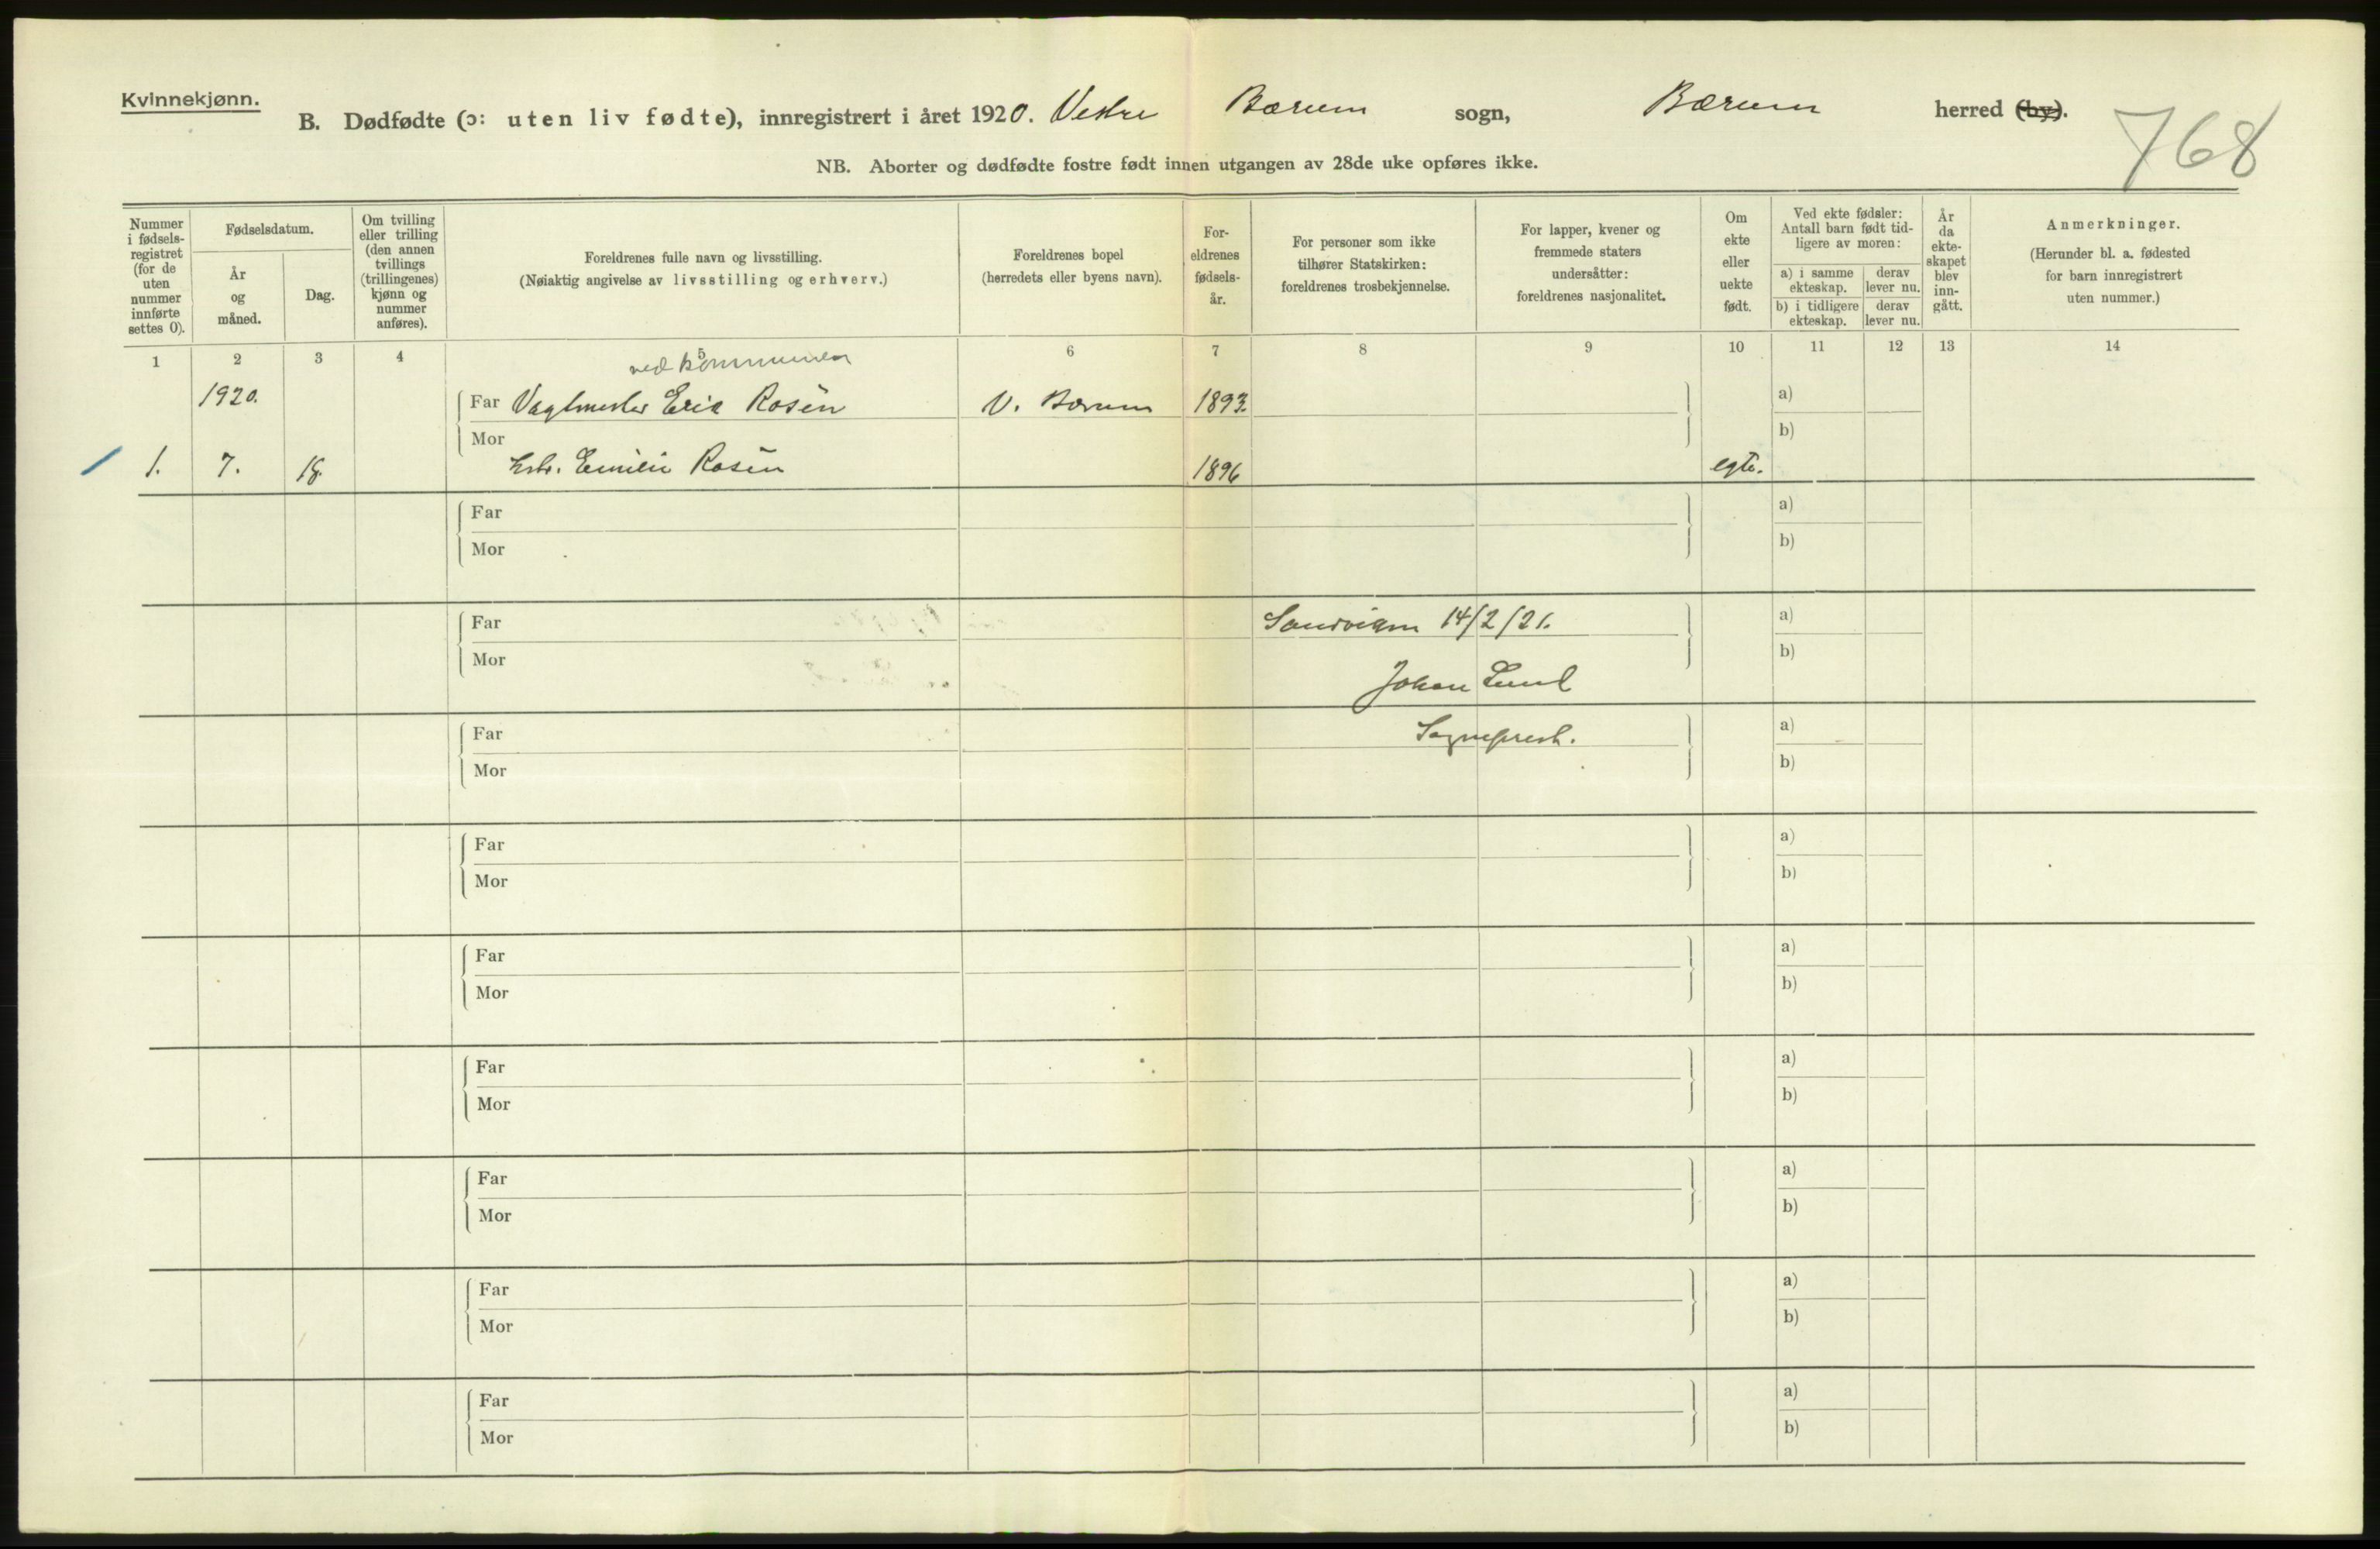 Kvinnekjønn.
B. Dødfødte (ɔ: uten liv fødte), innregistrert i året 1920. Vestre Bærum sogn, Bærum herred (by).
768
NB. Aborter og dødfødte fostre født innen utgangen av 28de uke opføres ikke.
Nummer i fødsels- registret (for de uten nummer innførte settes 0).
Fødselsdatum.
År og måned.
Dag.
Om tvilling eller trilling (den annen tvillings (trillingenes) kjønn og nummer anføres).
Foreldrenes fulle navn og livsstilling.
(Nøiaktig angivelse av livsstilling og erhverv.)
Foreldrenes bopel
(herredets eller byens navn).
For- eldrenes fødsels- år.
For personer som ikke tilhører Statskirken: foreldrenes trosbekjennelse.
For lapper, kvener og fremmede staters undersåtter: foreldrenes nasjonalitet.
Om ekte eller uekte født.
Ved ekte fødsler: Antall barn født tid- ligere av moren:
a) i samme ekteskap.
derav lever nu.
b) i tidligere ekteskap.
derav lever nu.
År da ekte- skapet blev inn- gått.
Anmerkninger.
(Herunder bl. a. fødested for barn innregistrert uten nummer.)
1 2 3 4 5 6 7 8 9 10 11 12 13 14
ved kommunen
1920. Far Vagtmester Eric Rosén V. Bærum 1893. a)
Mor b)
1. 7. 18. Hstr. Emilie Rosén 1896 egte.
Far a)
Mor b)
Far Sandviken 14/2/21. a)
Mor b)
Johan Lund
Far Sogneprest. a)
Mor b)
Far a)
Mor b)
Far a)
Mor b)
Far a)
Mor b)
Far a)
Mor b)
Far a)
Mor b)
Far a)
Mor b)